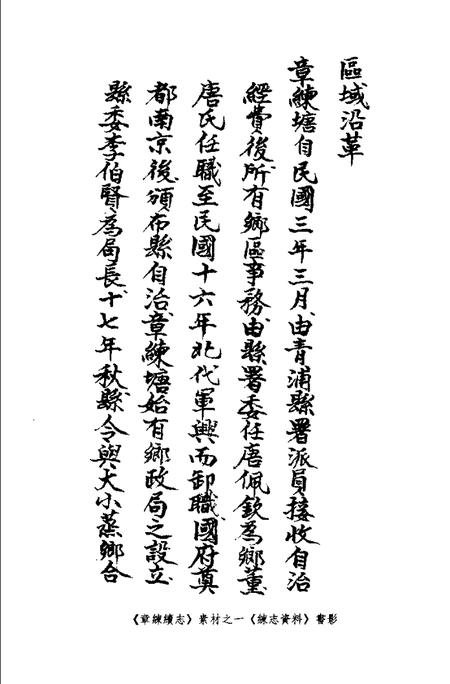 區域沿革
章練塘自民國三年三月由青浦縣署派員接收自治
經費後所有鄉區事務由縣署委任唐佩欽為鄉董
唐氏任職至民國十六年北伐軍興而卸職國府奠
都南京後頒布縣自治章練塘始有鄉政局之設立
縣委李伯賢為局長十七年秋縣令與大小蒸鄉合
《章練續志》素材之一《練志資料》書影